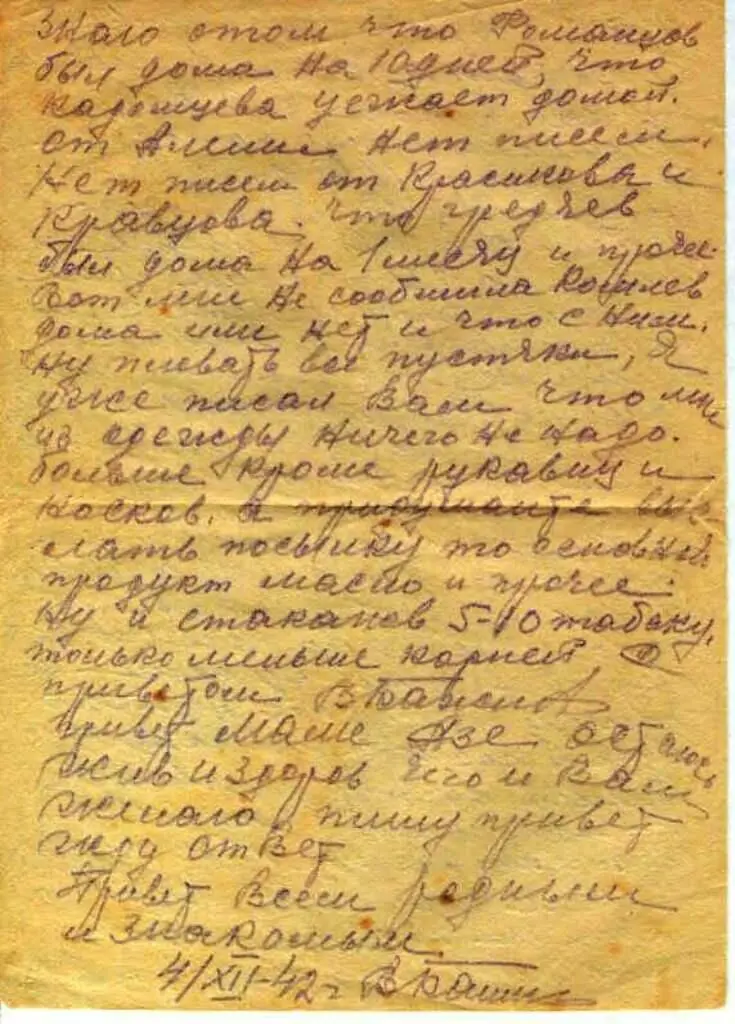 Знаю отом что Романцов
был дома на 10 дней, что
уезжает домой.
от нет писем,
Нет писем от Красикова и
Кравцова. что
был дома на 1 месяц и прочее
Вот мне не сообщила
дома или нет и что с ним.
ну плевать все пустяки, Я
уже писал Вам что мне
из одежды ничего не надо.
больше кроме рукавиц и
носков, а придумаете выс
лать посылку то основной
продукт масло и прочее.
ну и стаканов 5-10 табаку,
только меньше корней, С
приветом
привет маме Азе остаюсь
жив и здоров чего и Вам
желаю пишу привет
жду ответ
Привет Всем родным
и знакомым
4/XII-42 г